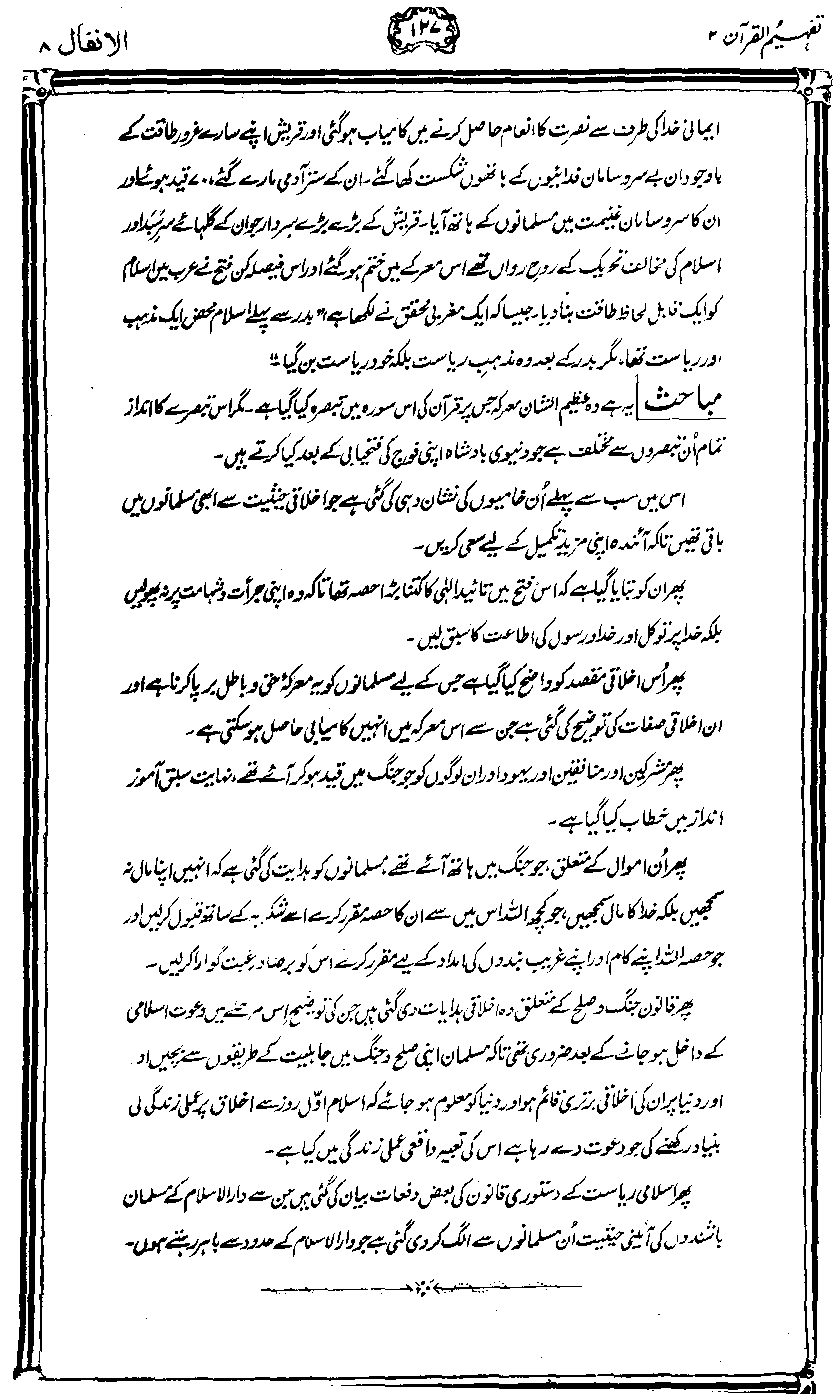 تفہیم القرآن ۲
۱۲۷
الانفال ۸
ایمانی خدا کی طرف سے نصرت کا انعام حاصل کرنے میں کامیاب ہوگئی اور قریش اپنے سارے غرور طاقت کے
باوجود ان بے سروسامان فدائیوں کے ہاتھوں شکست کھا گئے۔ ان کے ستر آدمی مارے گئے، ۷۰ قید ہوئے اور
ان کا سروسامان غنیمت میں مسلمانوں کے ہاتھ آیا۔ قریش کے بڑے بڑے سردار جو ان کے گلہائے سرسبد اور
اسلام کی مخالف تحریک کے روح رواں تھے اس معرکے میں ختم ہوگئے اور اس فیصلہ کن فتح نے عرب میں اسلام
کو ایک قابل لحاظ طاقت بنا دیا۔ جیسا کہ ایک مغربی محقق نے لکھا ہے، "بدر سے پہلے اسلام محض ایک مذہب
اور ریاست تھا، مگر بدر کے بعد وہ مذہب ریاست بلکہ خود ریاست بن گیا"
مباحث یہ ہے وہ عظیم الشان معرکہ جس پر قرآن کی اس سورہ میں تبصرہ کیا گیا ہے۔ مگر اس تبصرے کا انداز
تمام اُن تبصروں سے مختلف ہے جو دنیوی بادشاہ اپنی فوج کی فتحیابی کے بعد کیا کرتے ہیں۔
اس میں سب سے پہلے اُن خامیوں کی نشان دہی کی گئی ہے جو اخلاقی حیثیت سے ابھی مسلمانوں میں
باقی تھیں تاکہ آئندہ اپنی مزید تکمیل کے لیے سعی کریں۔
پھر ان کو بتایا گیا ہے کہ اس فتح میں تائید الٰہی کا کتنا بڑا حصہ تھا تاکہ وہ اپنی جرأت و شہامت پر نہ پھولیں
بلکہ خدا پر توکل اور خدا و رسول کی اطاعت کا سبق لیں۔
پھر اُس اخلاقی مقصد کو واضح کیا گیا ہے جس کے لیے مسلمانوں کو یہ معرکۂ حق و باطل برپا کرنا ہے اور
ان اخلاقی صفات کی توضیح کی گئی ہے جن سے اس معرکہ میں انہیں کامیابی حاصل ہوسکتی ہے۔
پھر مشرکین اور منافقین اور یہود اور ان لوگوں کو جو جنگ میں قید ہو کر آئے تھے، نہایت سبق آموز
انداز میں خطاب کیا گیا ہے۔
پھر اُن اموال کے متعلق، جو جنگ میں ہاتھ آئے تھے، مسلمانوں کو ہدایت کی گئی ہے کہ انہیں اپنا مال نہ
سمجھیں بلکہ خدا کا مال سمجھیں، جو کچھ اللہ اس میں سے ان کا حصہ مقرر کرے اسے شکریہ کے ساتھ قبول کریں اور
جو حصہ اللہ اپنے کام اور اپنے غریب بندوں کی امداد کے لیے مقرر کرے اس کو برضا و رغبت گوارا کریں۔
پھر قانون جنگ و صلح کے متعلق وہ اخلاقی ہدایات دی گئی ہیں جن کی توضیح اِس مرحلے میں دعوت اسلامی
کے داخل ہو جانے کے بعد ضروری تھی تاکہ مسلمان اپنی صلح و جنگ میں جاہلیت کے طریقوں سے بچیں او
اور دنیا پر ان کی اخلاقی برتری قائم ہو اور دنیا کو معلوم ہو جائے کہ اسلام اوّل روز سے اخلاق پر عملی زندگی کی
بنیاد رکھنے کی جو دعوت دے رہا ہے اس کی تعبیر واقعی عملی زندگی میں کیا ہے۔
پھر اسلامی ریاست کے دستوری قانون کی بعض دفعات بیان کی گئی ہیں جن سے دار الاسلام کے مسلمان
باشندوں کی آئینی حیثیت اُن مسلمانوں سے الگ کر دی گئی ہے جو دار الاسلام کے حدود سے باہر رہتے ہوں۔